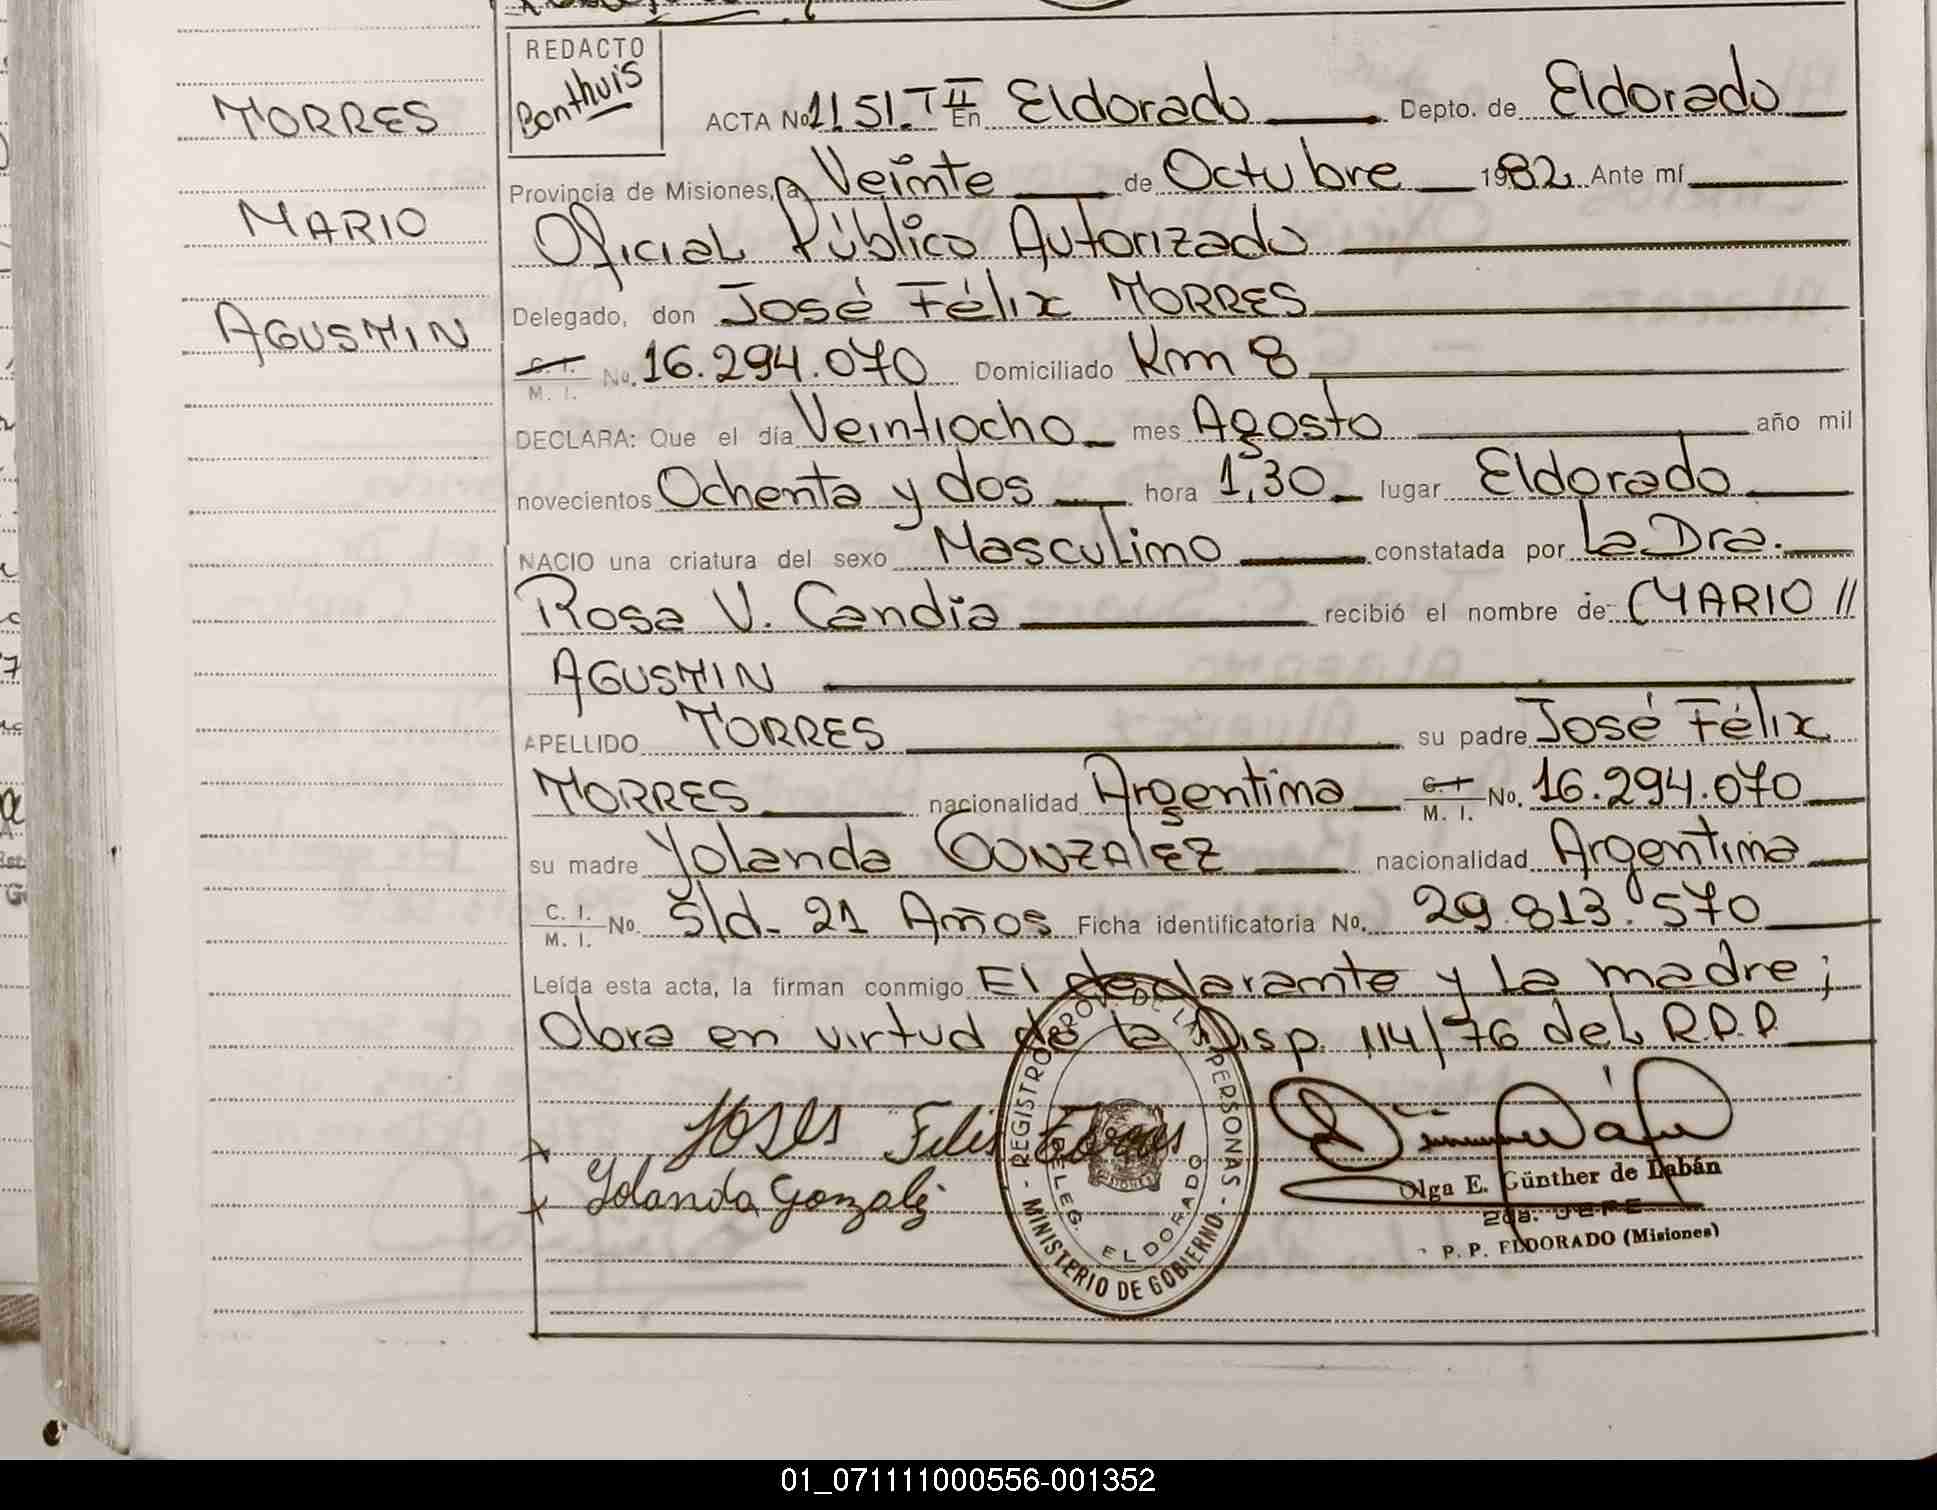 TORRES
MARIO
AGUSTIN
REDACTO
Bonthuis
ACTA No 1151. T II En Eldorado Depto. de Eldorado
Provincia de Misiones, a Veinte de Octubre 1982 Ante mí
Oficial Público Autorizado
Delegado, don José Félix TORRES
C. I. M. I. No. 16.294.070 Domiciliado Km 8
DECLARA: Que el día Veintiocho mes Agosto año mil
novecientos Ochenta y dos hora 1,30 lugar Eldorado
NACIO una criatura del sexo Masculino constatada por la Dra.
Rosa V. Candia recibió el nombre de MARIO //
AGUSTIN
APELLIDO TORRES su padre José Félix
TORRES nacionalidad Argentina C. I. M. I. No. 16.294.070
su madre Yolanda GONZALEZ nacionalidad Argentina
C. I. M. I. No. S/d- 21 Años Ficha identificatoria No. 29.813.570
Leída esta acta, la firman conmigo El declarante y la madre;
Obra en virtud de la Disp. 114/76 del R.P.P.
Felis Torres
Yolanda Gonzalez
REGISTRO PROV. DE LAS PERSONAS - MINISTERIO DE GOBIERNO -
DELEG. ELDORADO
MISIONES
Olga E. Günther de Labán
2da. JEFE
P. P. ELDORADO (Misiones)
01_071111000556-001352